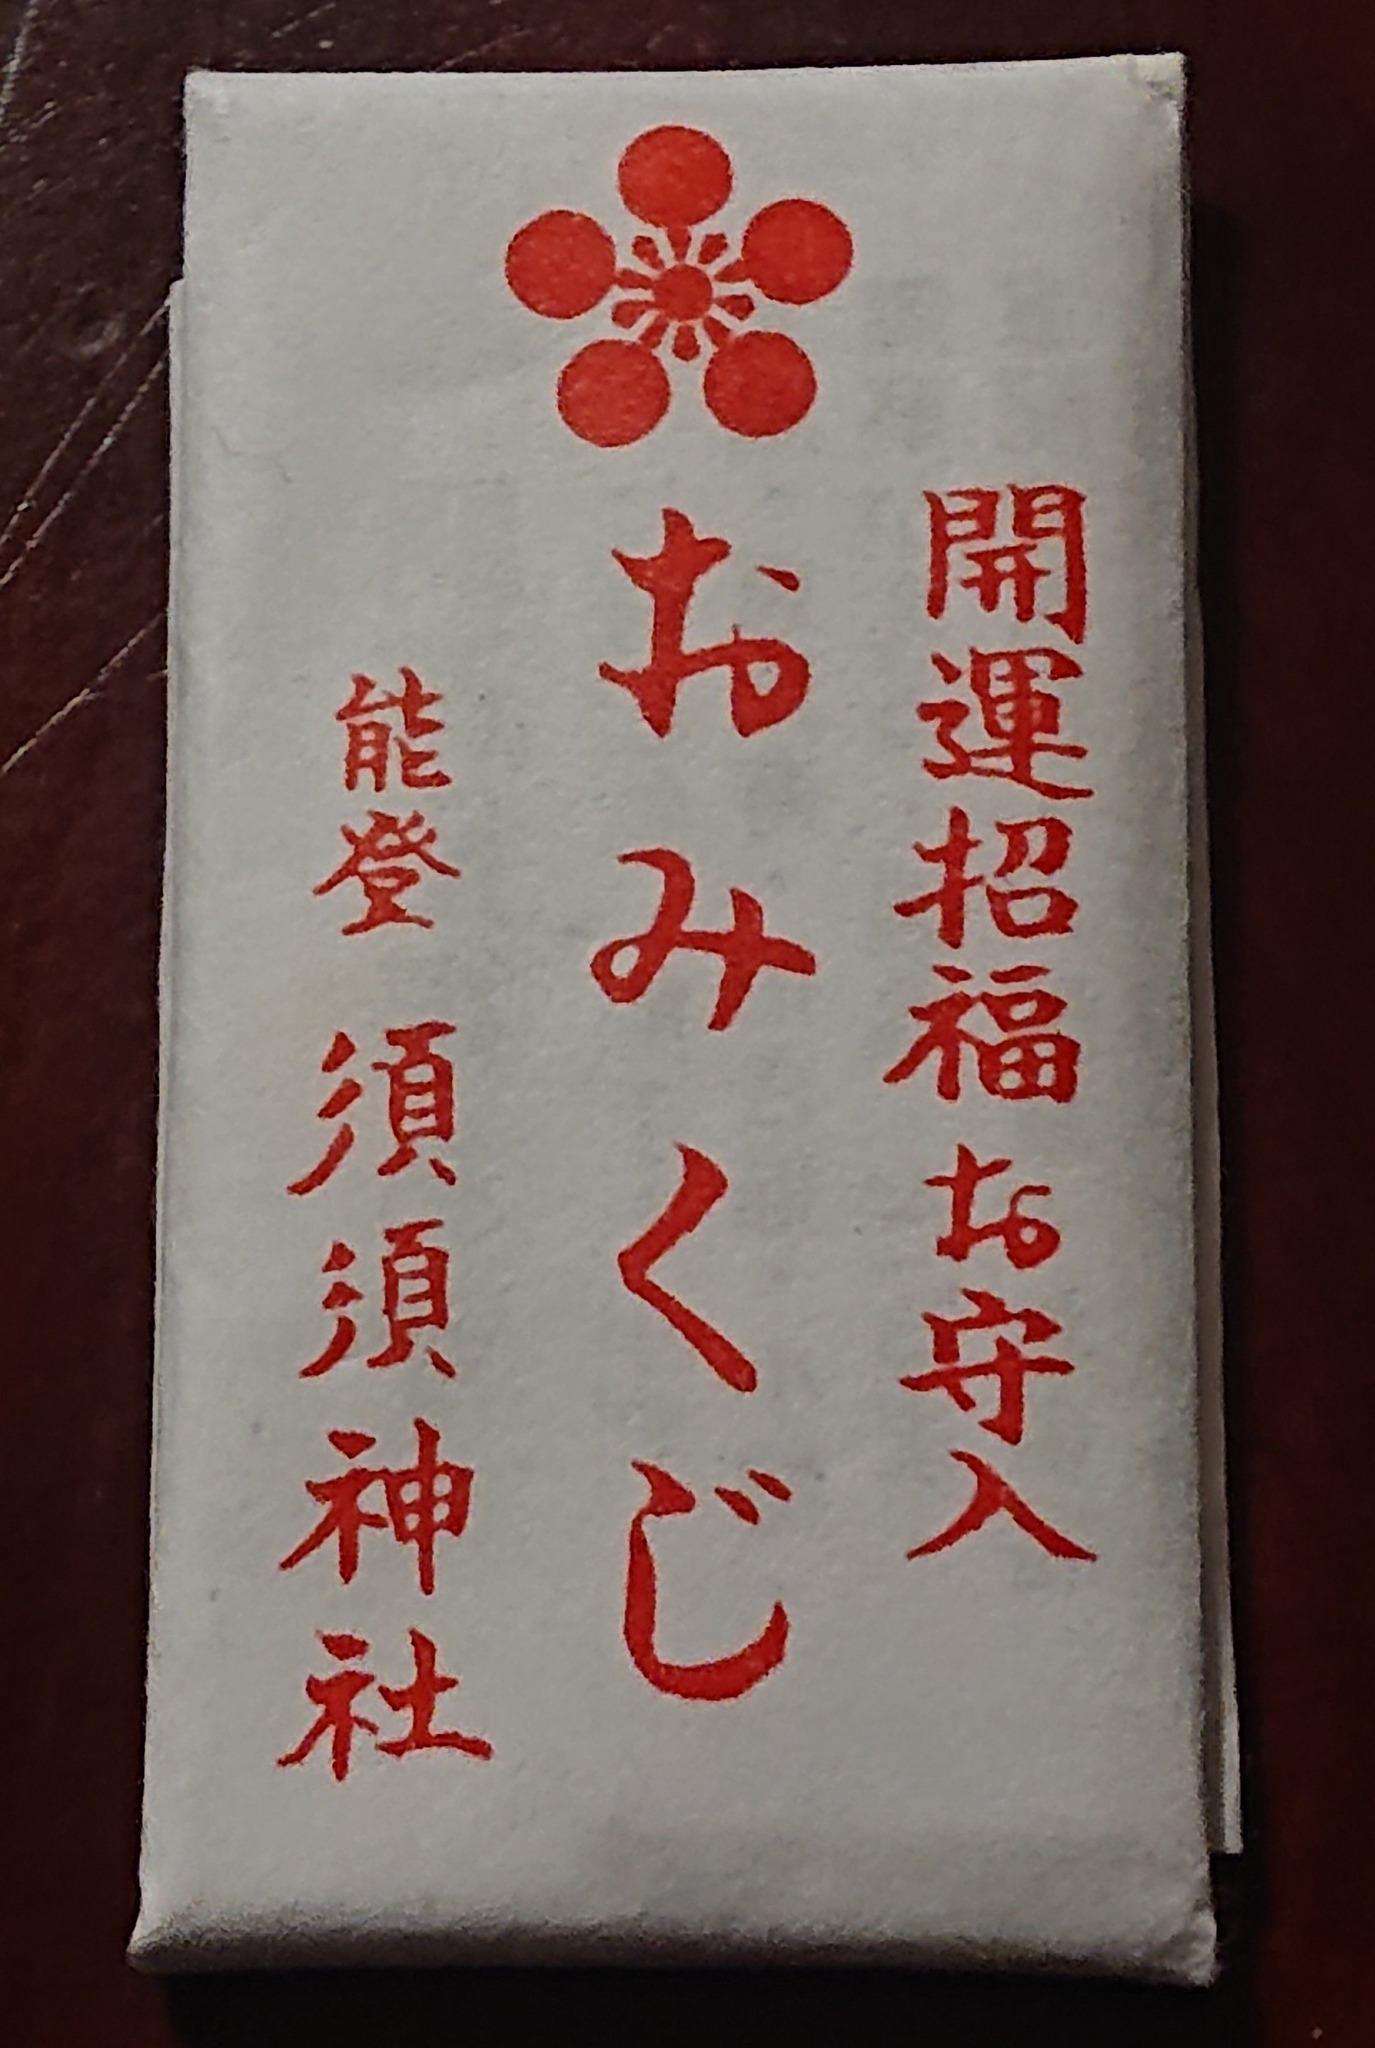 開運招福お守入
おみくじ
能登 須須神社